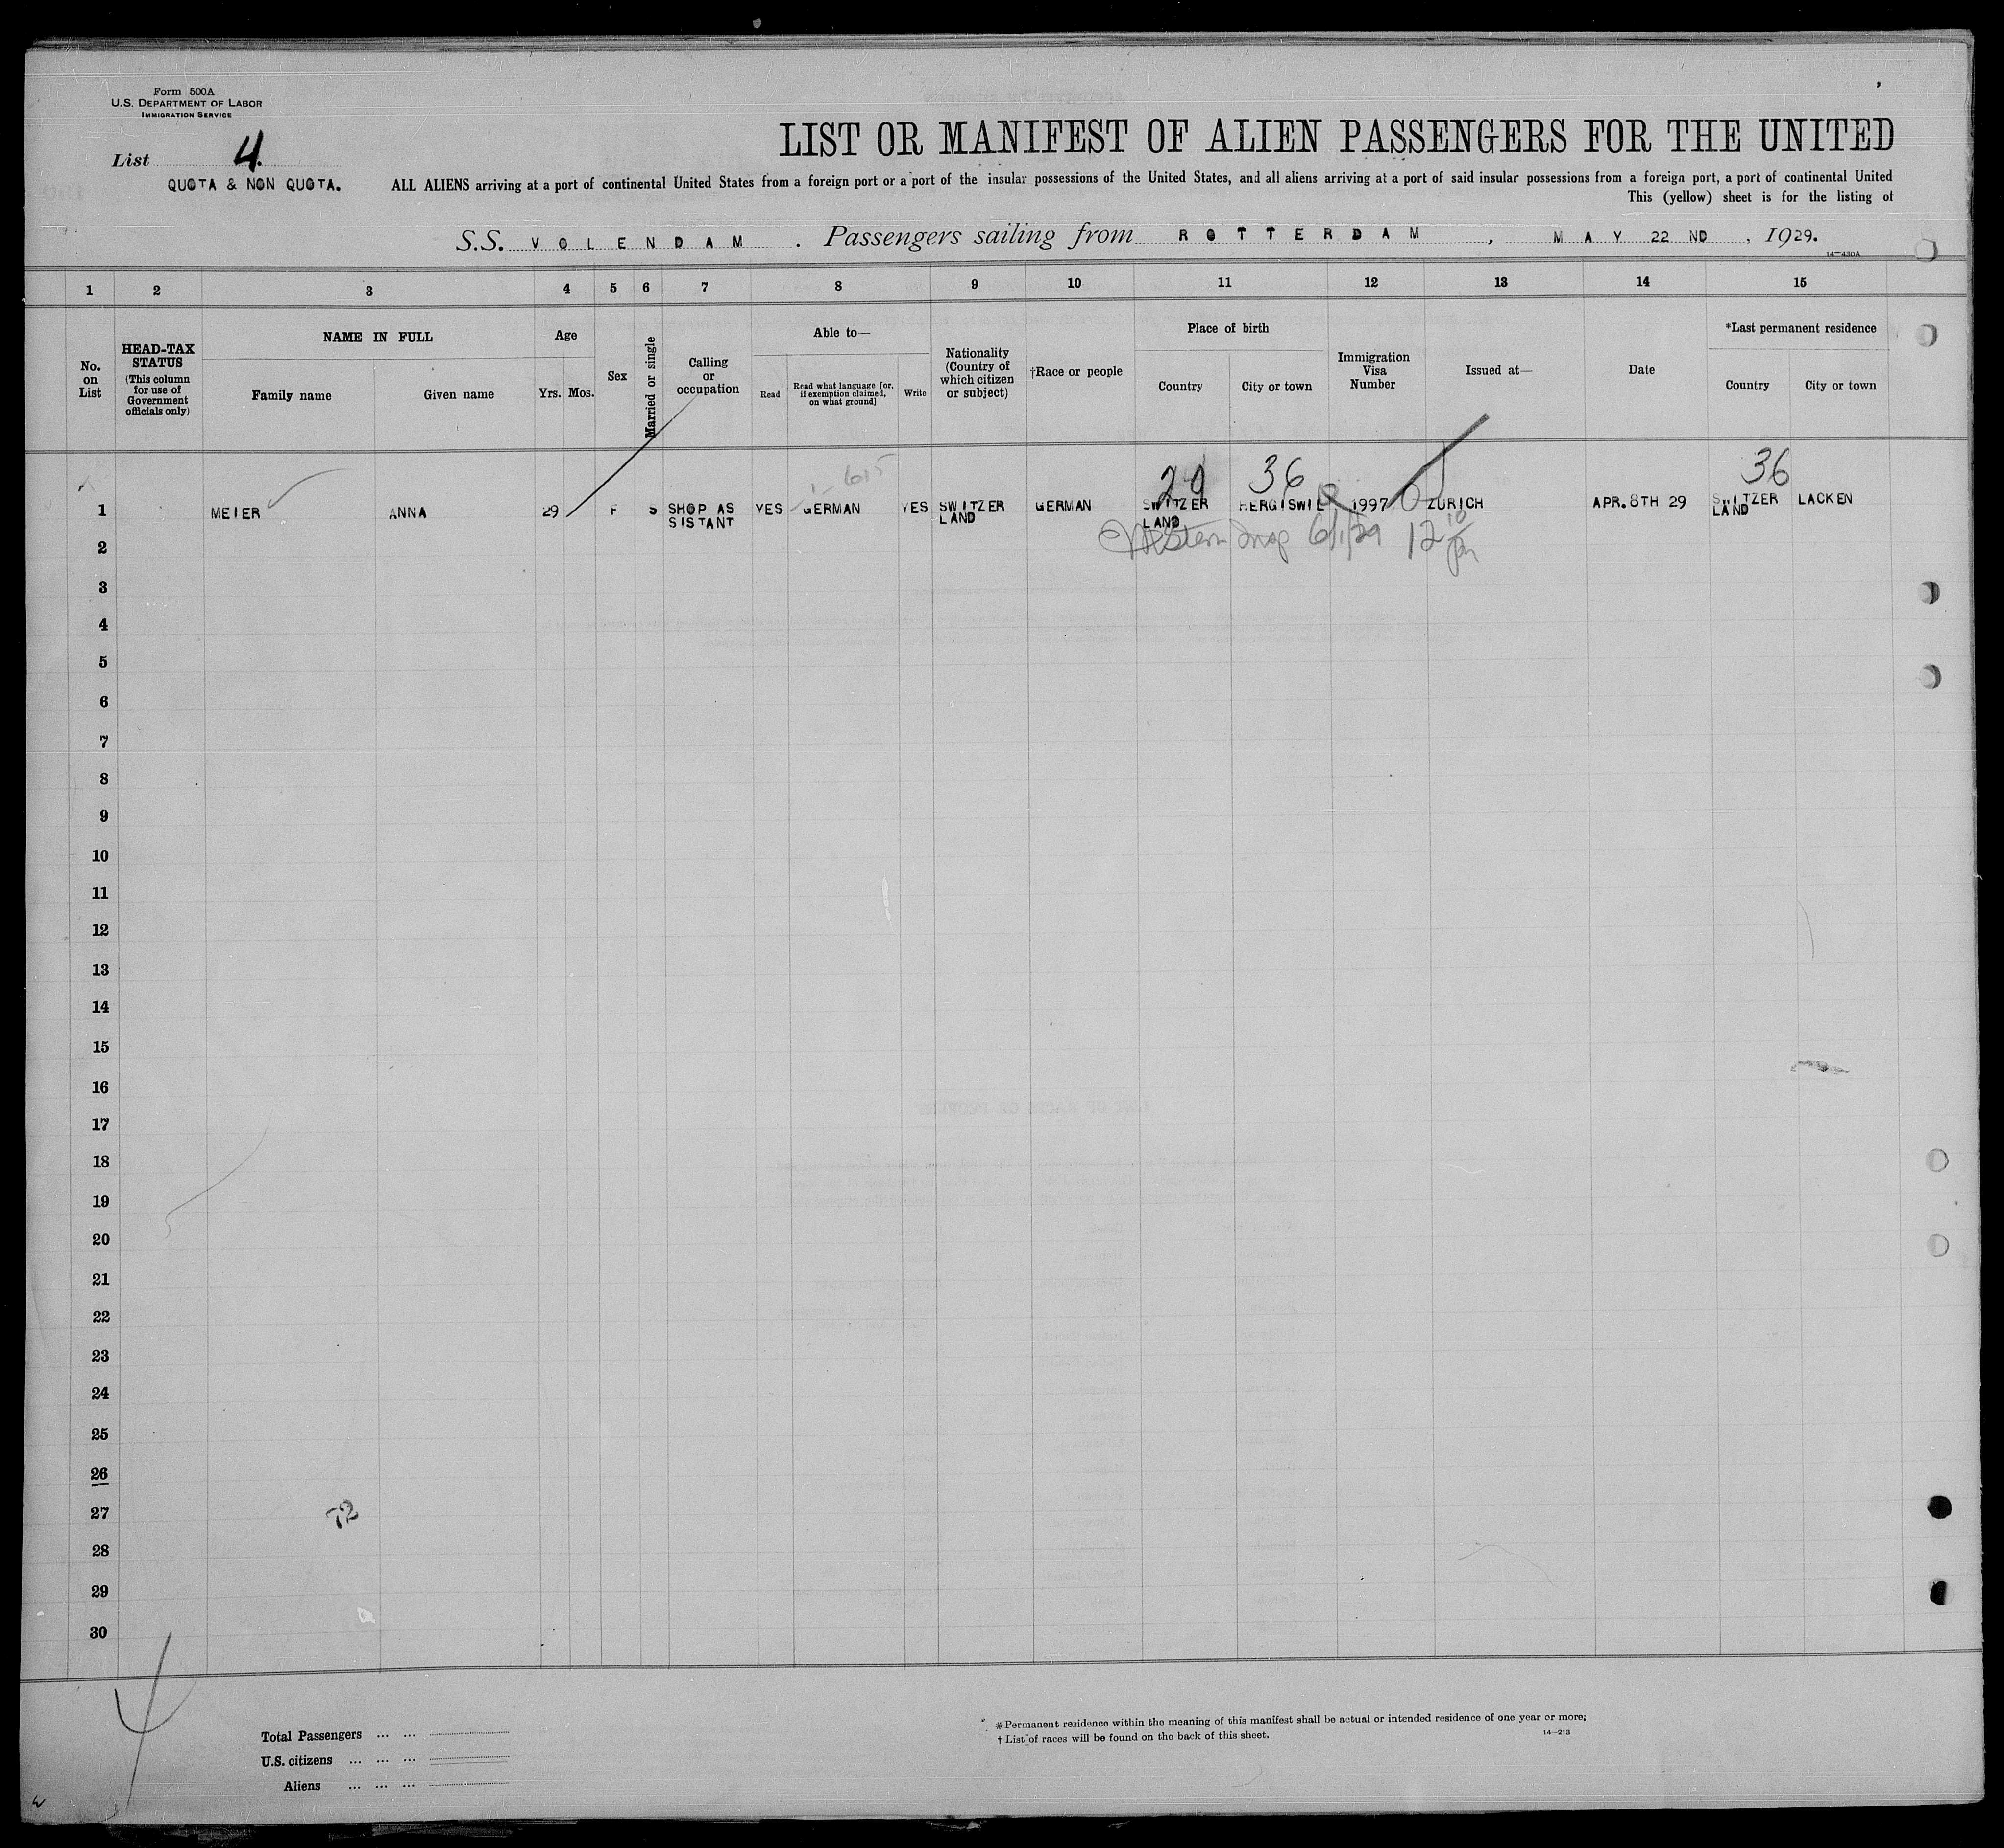 Form 500A
U.S. DEPARTMENT OF LABOR
IMMIGRATION SERVICE
List 4.
QUOTA & NON QUOTA.
LIST OR MANIFEST OF ALIEN PASSENGERS FOR THE UNITED
ALL ALIENS arriving at a port of continental United States from a foreign port or a port of the insular possessions of the United States, and all aliens arriving at a port of said insular possessions from a foreign port, a port of continental United
This (yellow) sheet is for the listing of
S.S. VOLENDAM . Passengers sailing from ROTTERDAM , MAY 22 ND , 1929.
14—430A
1 2 3 4 5 6 7 8 9 10 11 12 13 14 15
No. on List
HEAD-TAX STATUS
(This column for use of Government officials only)
NAME IN FULL
Family name Given name
Age
Yrs. Mos.
Sex
Married or single
Calling or occupation
Able to—
Read
Read what language [or, if exemption claimed, on what ground]
Write
Nationality (Country of which citizen or subject)
†Race or people
Place of birth
Country City or town
Immigration Visa Number
Issued at—
Date
*Last permanent residence
Country City or town
615
29 36 36
1 MEIER ANNA 29 F S SHOP AS SISTANT YES GERMAN YES SWITZER LAND GERMAN SWITZER LAND HERGISWIL 1997 ZURICH APR.8TH 29 SWITZER LAND LACKEN
6/1/29 12
2
3
4
5
6
7
8
9
10
11
12
13
14
15
16
17
18
19
20
21
22
23
24
25
26
27
72
28
29
30
Total Passengers ... ...
U.S. citizens ... ... ...
Aliens ... ... ...
*Permanent residence within the meaning of this manifest shall be actual or intended residence of one year or more;
† List of races will be found on the back of this sheet.
14—213